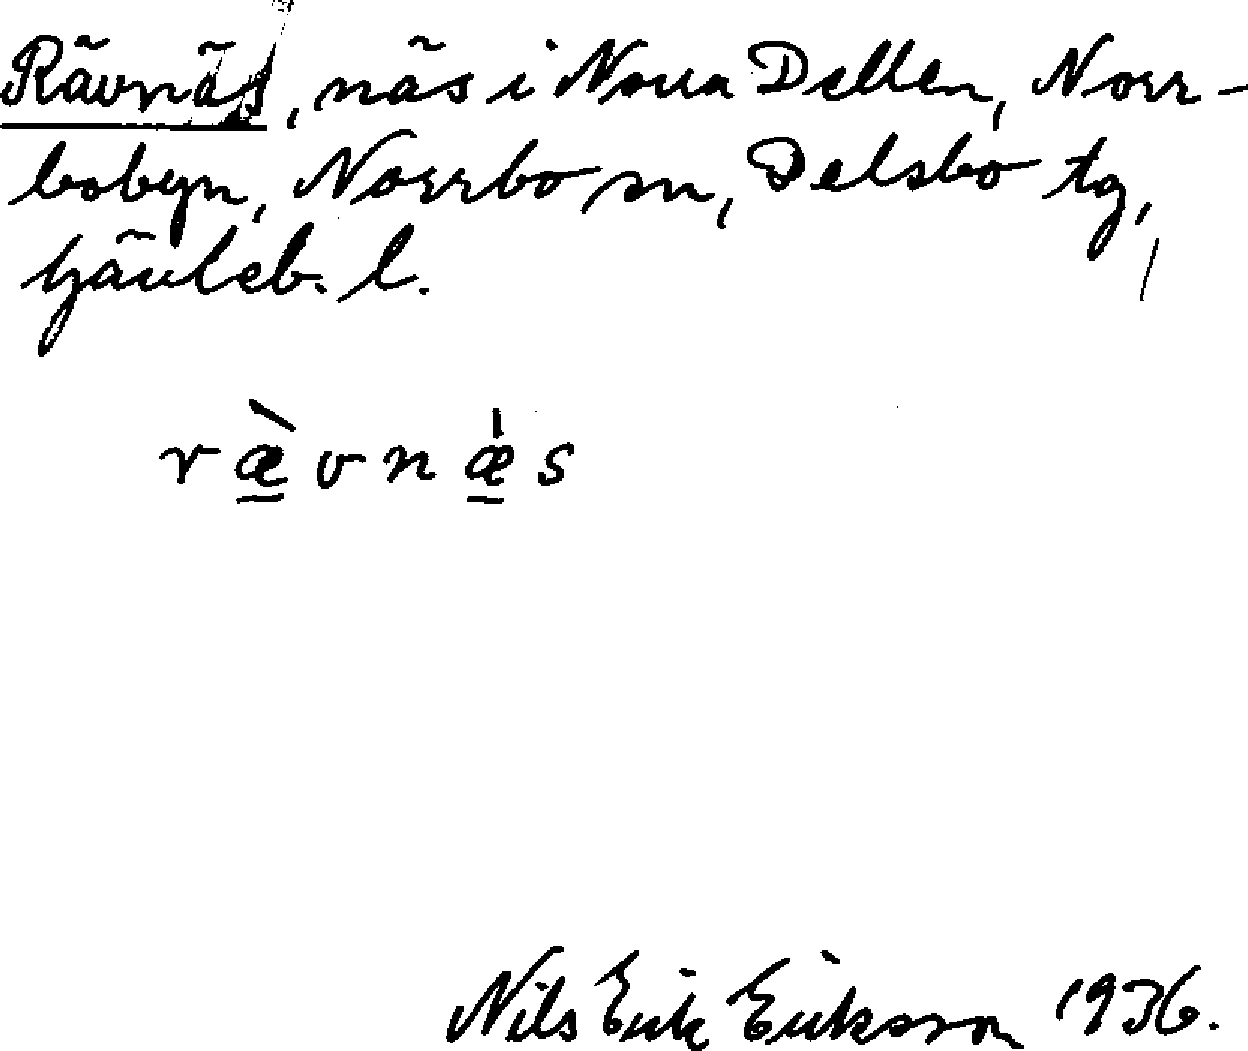 Rävnäs, näs i Norra Dellen, Norr-
bobyn, Norrbo sn, Delsbo tg,
Gävleb. l.
ræ̱̀vnǽ̱s
Nils Erik Eriksson 1936.